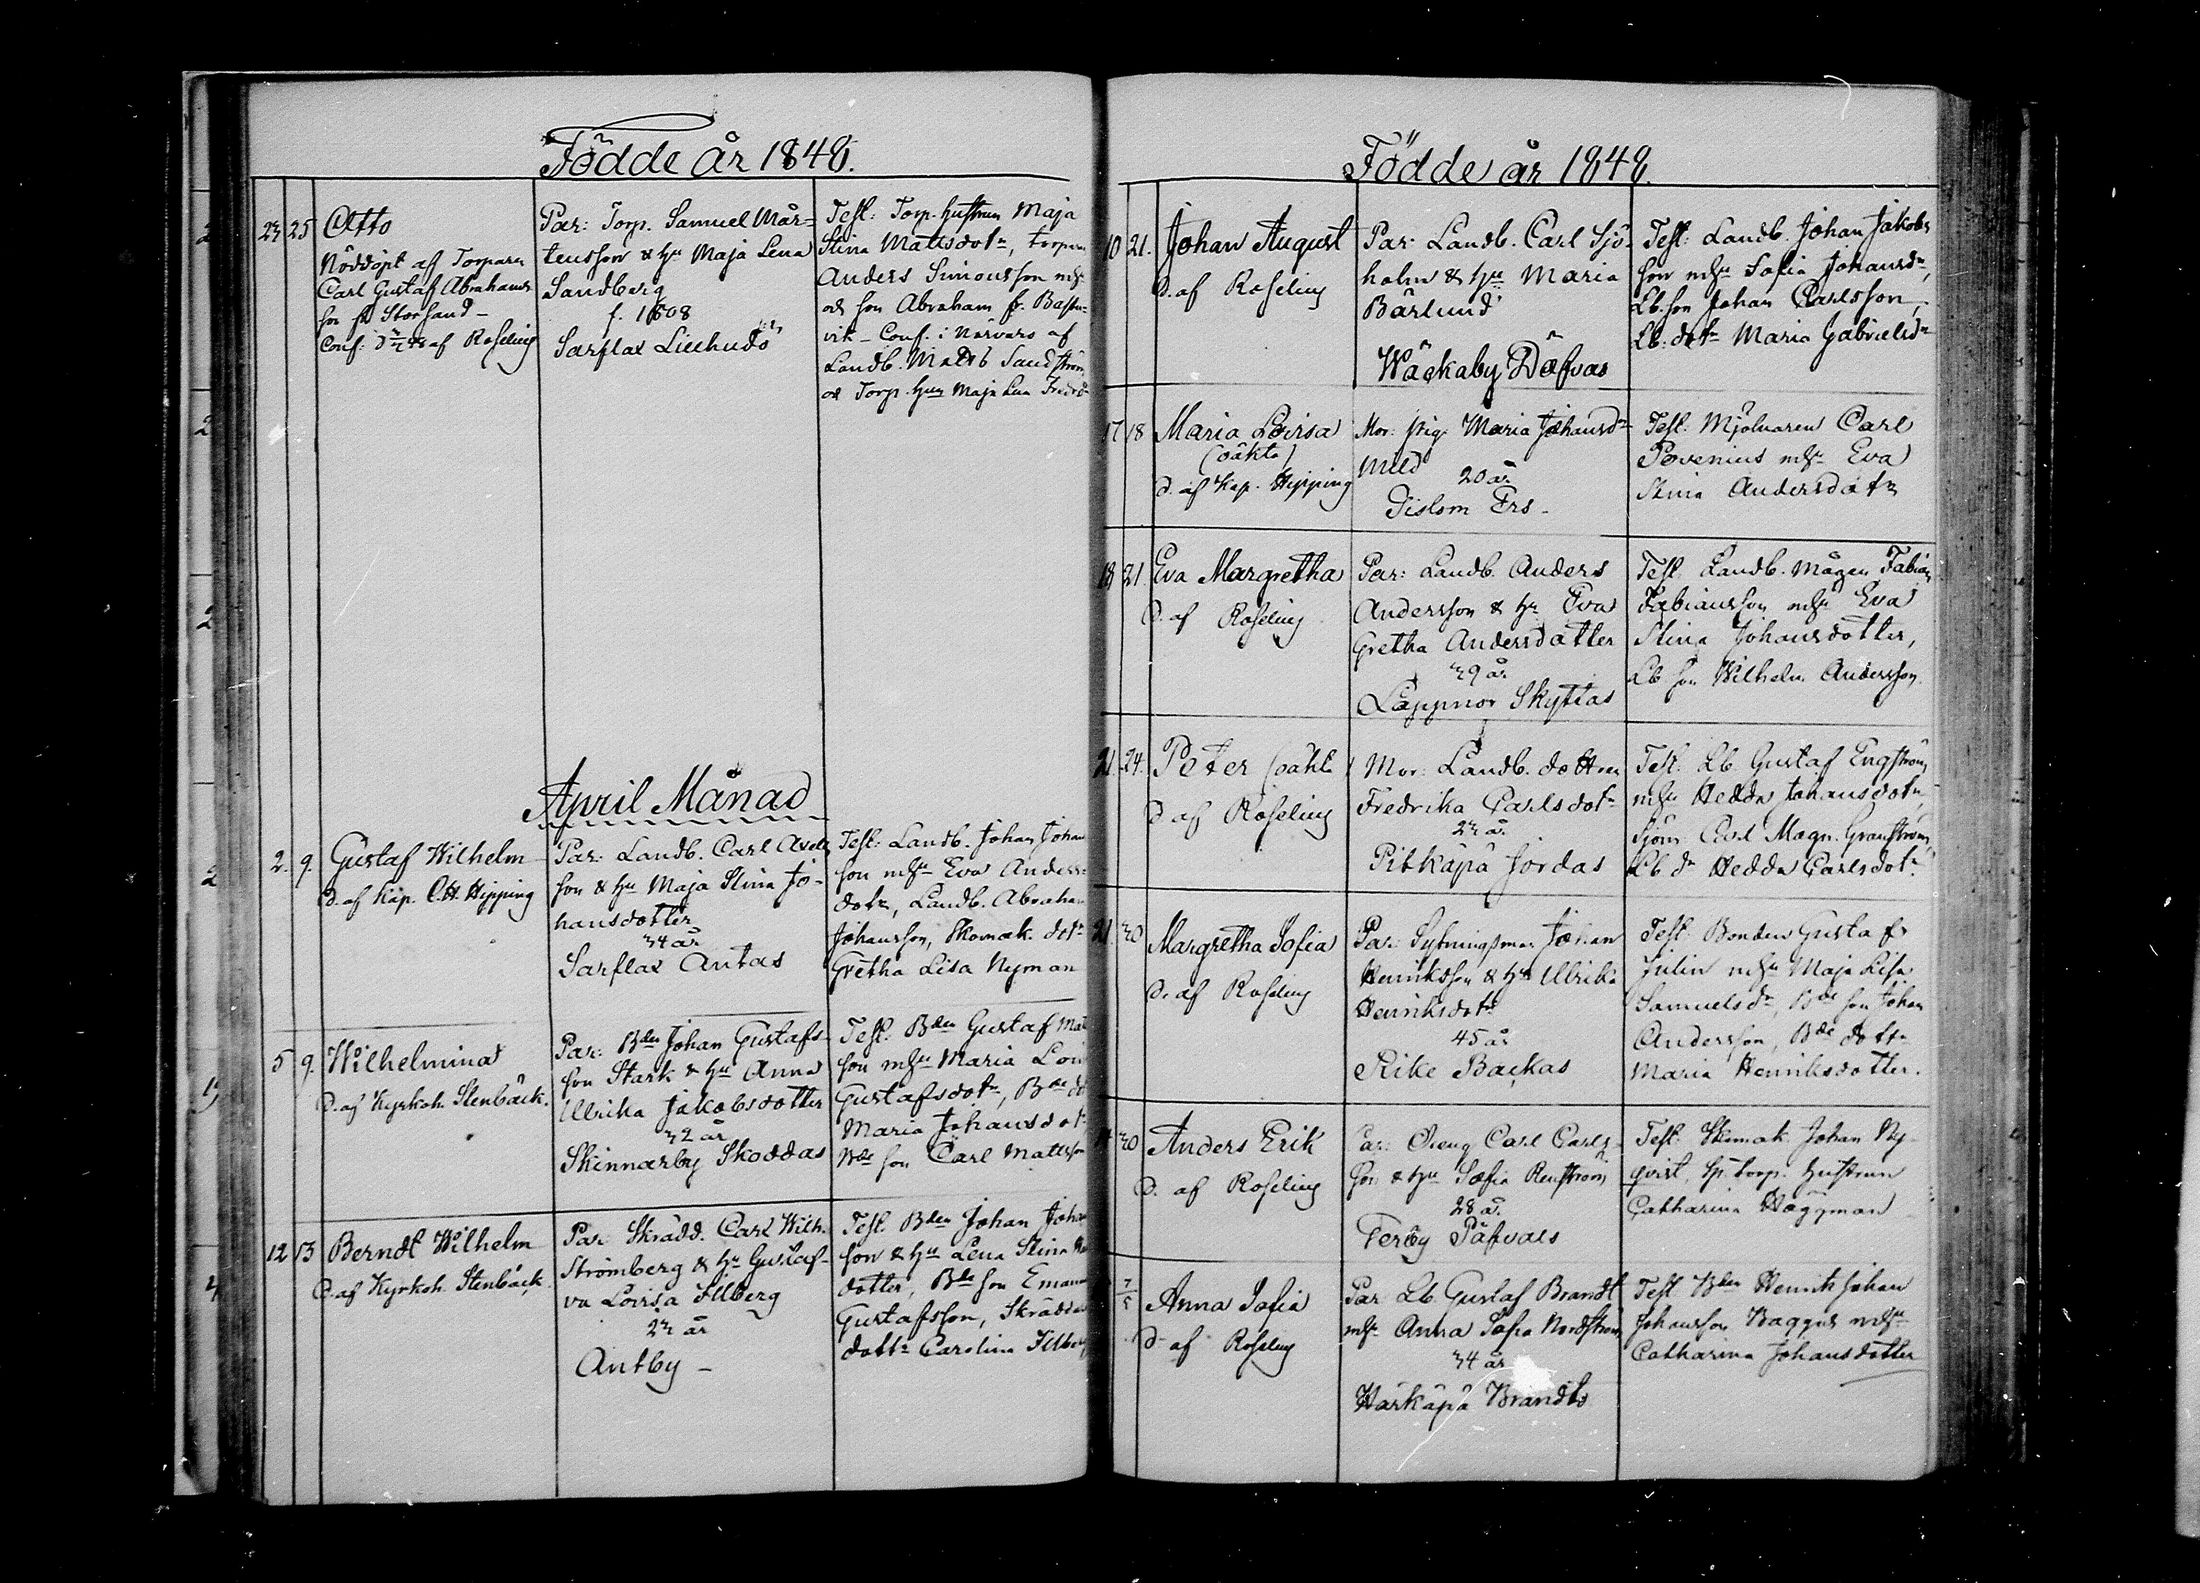 Födde År 1848.
23 25 Otto
Nöddöpt af Torparen
Carl Gustaf Abrahams
son fr Storsand -
Conf. af Roseling
Par: Torp. Samuel Mår-
tensson & hu Maja Lena
Sandberg
f. 1808
Sarflax Lillhuda
Test: Torp. hustrun Maja
Stina Mattsdotr, torparen
Anders Simonsson mhu
och son Abraham fr. Basten-
vik - Conf. i närvaro af
Landb. Matts Sandström
och Torp. hun Maja Lena Fredrsd
April Månad
2. 9. Gustaf Wilhelm
D. af Kap. C.H. Hipping
Par: Landb. Carl Axels
son & hu Maja Stina Jo-
hansdotter
34 år
Sarflax Antas
Test: Landb. Johan Johan
son mhu Eva Anders
dotr, Landb. Abraham
Johansson, Skomak. dotr
Gretha Lisa Nyman
5 9. Wilhelmina
D. af Kyrkoh. Stenbäck.
Par: Bden Johan Gustafs-
son Stark & hu Anna
Ullrika Jakobsdotter
32 år
Skinnarby Skoddas
Test. Bden Gustaf Mat
son mhu Maria Lovi
Gustafsdotr, Bde do
Maria Johansdotr
Bde son Carl Mattsson
12 13 Berndt Wilhelm
D. af Kyrkoh. Stenbäck.
Par Skrädd. Carl Wilh.
Strömberg & hu Gustaf-
va Lovisa Illberg
23 år
Antby -
Test. Bden Johan Johan
son & hu Lena Stina
dotter, Bde son Emanu
Gustafsson, Skrädda
dottr Carolina Illberg
Födde år 1848.
10 21. Johan August
D. af Roseling
Par: Landb. Carl Sjö-
holm & hu Maria
Bärlund
Wäckaby Däfvas
Test: Landb. Johan Jakobs
son mhu Sofia Johansdr,
Lb. son Johan Carlsson,
Lb: dotr Maria Gabrielsdr
17 18 Maria Lovisa
(oäkta)
D. af Kap. Hipping
Mor: pig. Maria Johansdr
Mild
20 år
Gislom Ers -
Test: Mjölnaren Carl
Povenius mhu Eva
Stina Andersdotr
18 21. Eva Margretha
D. af Roseling
Par: Landb. Anders
Andersson & hu Eva
Gretha Andersdotter
39 år
Lappnor Skyttas
Test. Landb. mågen Fabian
Fabiansson mhu Eva
Stina Johansdotter,
Lb son Wilhelm Andersson
21 24. Peter (oäkta)
D af Roseling
Mor: Landb. dottren
Fredrika Carlsdotr
23 år.
Pitkäpä Jordas
Test: Lb Gustaf Engström,
mhu Hedda Johansdotr,
Sjöm Carl Magn. Granström,
Lb dr Hedda Carlsdotr.
21. 30 Margretha Sofia
D. af Roseling
Par: Sytningsman Johan
Henriksson & hu Ullrika
Henriksdotr
45 år
Rike Backas
Test: Bonden Gustaf
Julin mhu Maja Lisa
Samuelsdr, Bde son Johan
Andersson, Bde dottr
Maria Henriksdotter.
30 Anders Erik
D. af Roseling
Par: Dreng Carl Carls-
son & hu Sofia Renström
28 år.
Terby Päfvals
Test: Skomak. Johan Ny-
qvist, Sp. torp. hustrun
Catharina Häggman
7/5 Anna Sofia
D af Roseling
Par Lb Gustaf Brandt
mhu Anna Sofia Nordström
34 år
Härkäpä Brandts
Test Bden Henrik Johan
Johansson Baggas mhu
Catharina Johansdotter